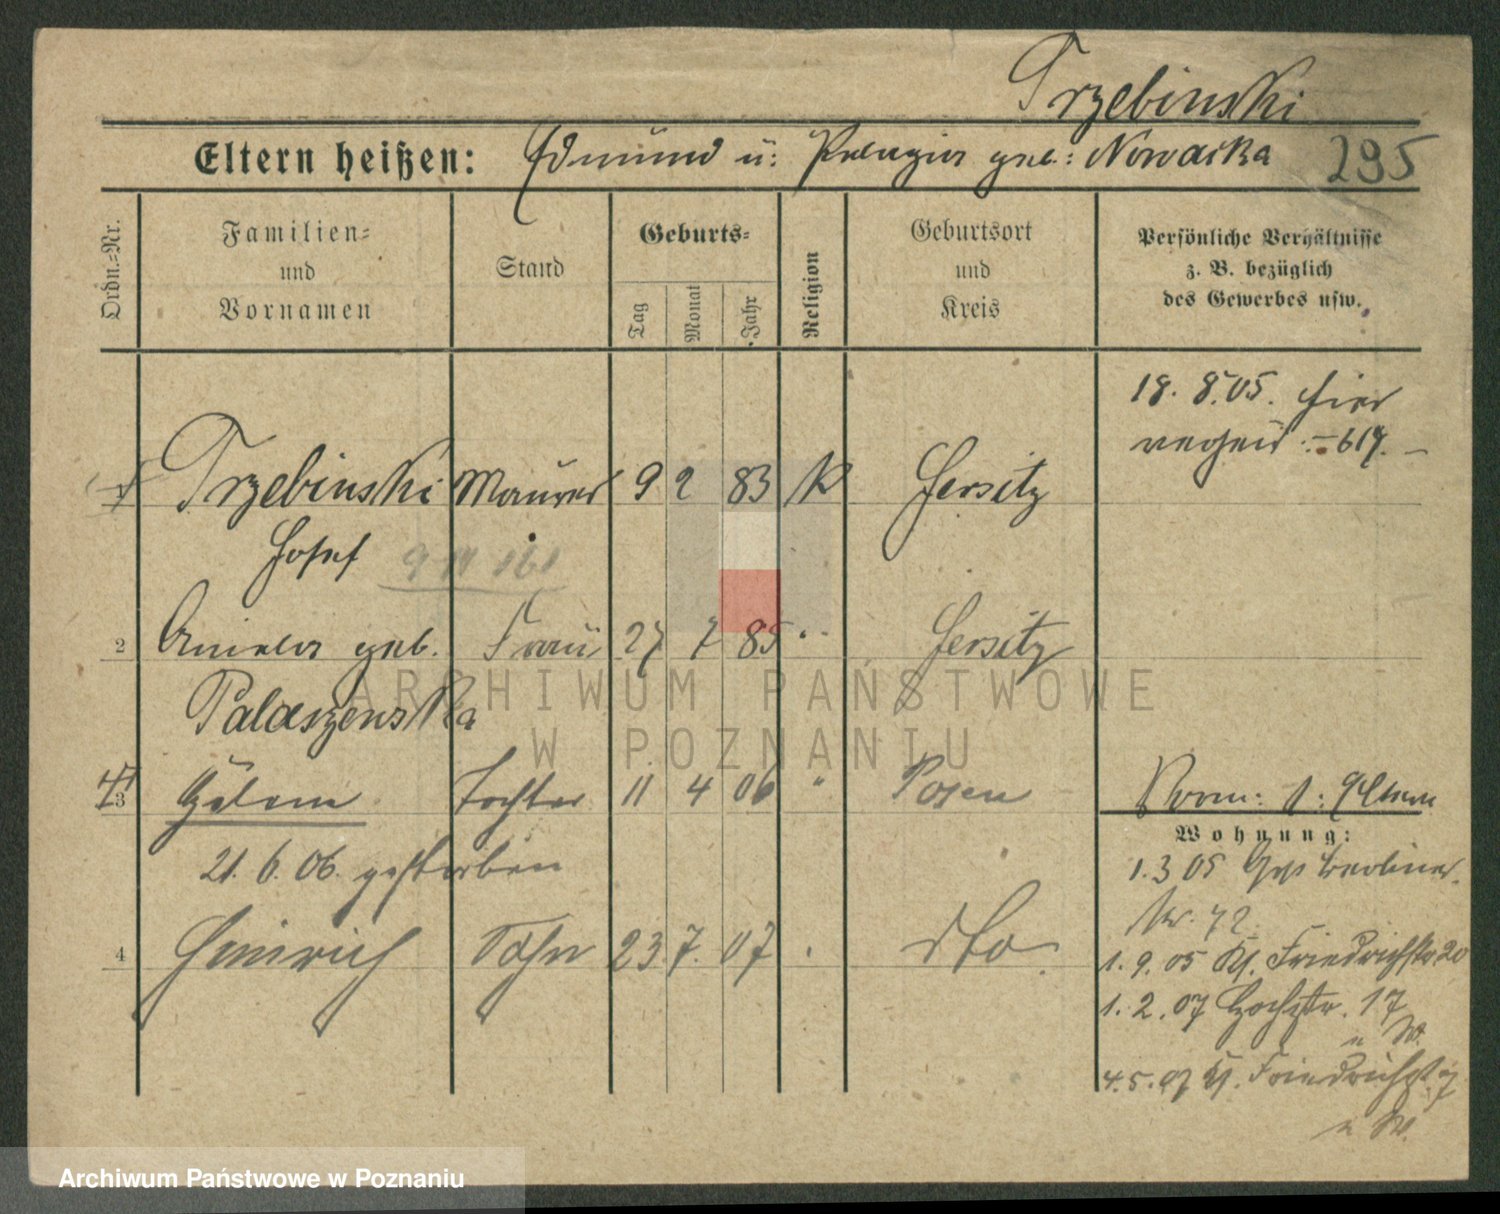 Trzebinski
Eltern heißen: Edmund u: Pelagia geb.: Nowacka 295
Ordn.-Nr.
Familien-
und
Vornamen
Stand
Geburts-
Tag
Monat
Jahr
Religion
Geburtsort
und
Kreis
Persönliche Verhältnisse
z. B. bezüglich
des Gewerbes usw.
18. 8. 05. hier
617.
1 Trzebinski Maurer 9 2 83 K Jersitz
Josef
2 Aniela geb. Frau 27 7 85 " Jersitz
Palaszenska
3 Tochter 11 4 06 " Posen
21. 6. 06. gestorben
4 Heinrich Sohn 23. 7. 07 dto.
Wohnung:
1. 3 05 Gr. Berliner-
str. 72
1. 9. 05 Kl. Friedrichstr 20
1. 2. 07 Hochstr. 17
4. 5. 07 Kl. Friedrichst. 7
ARCHIWUM PAŃSTWOWE
W POZNANIU
Archiwum Państwowe w Poznaniu